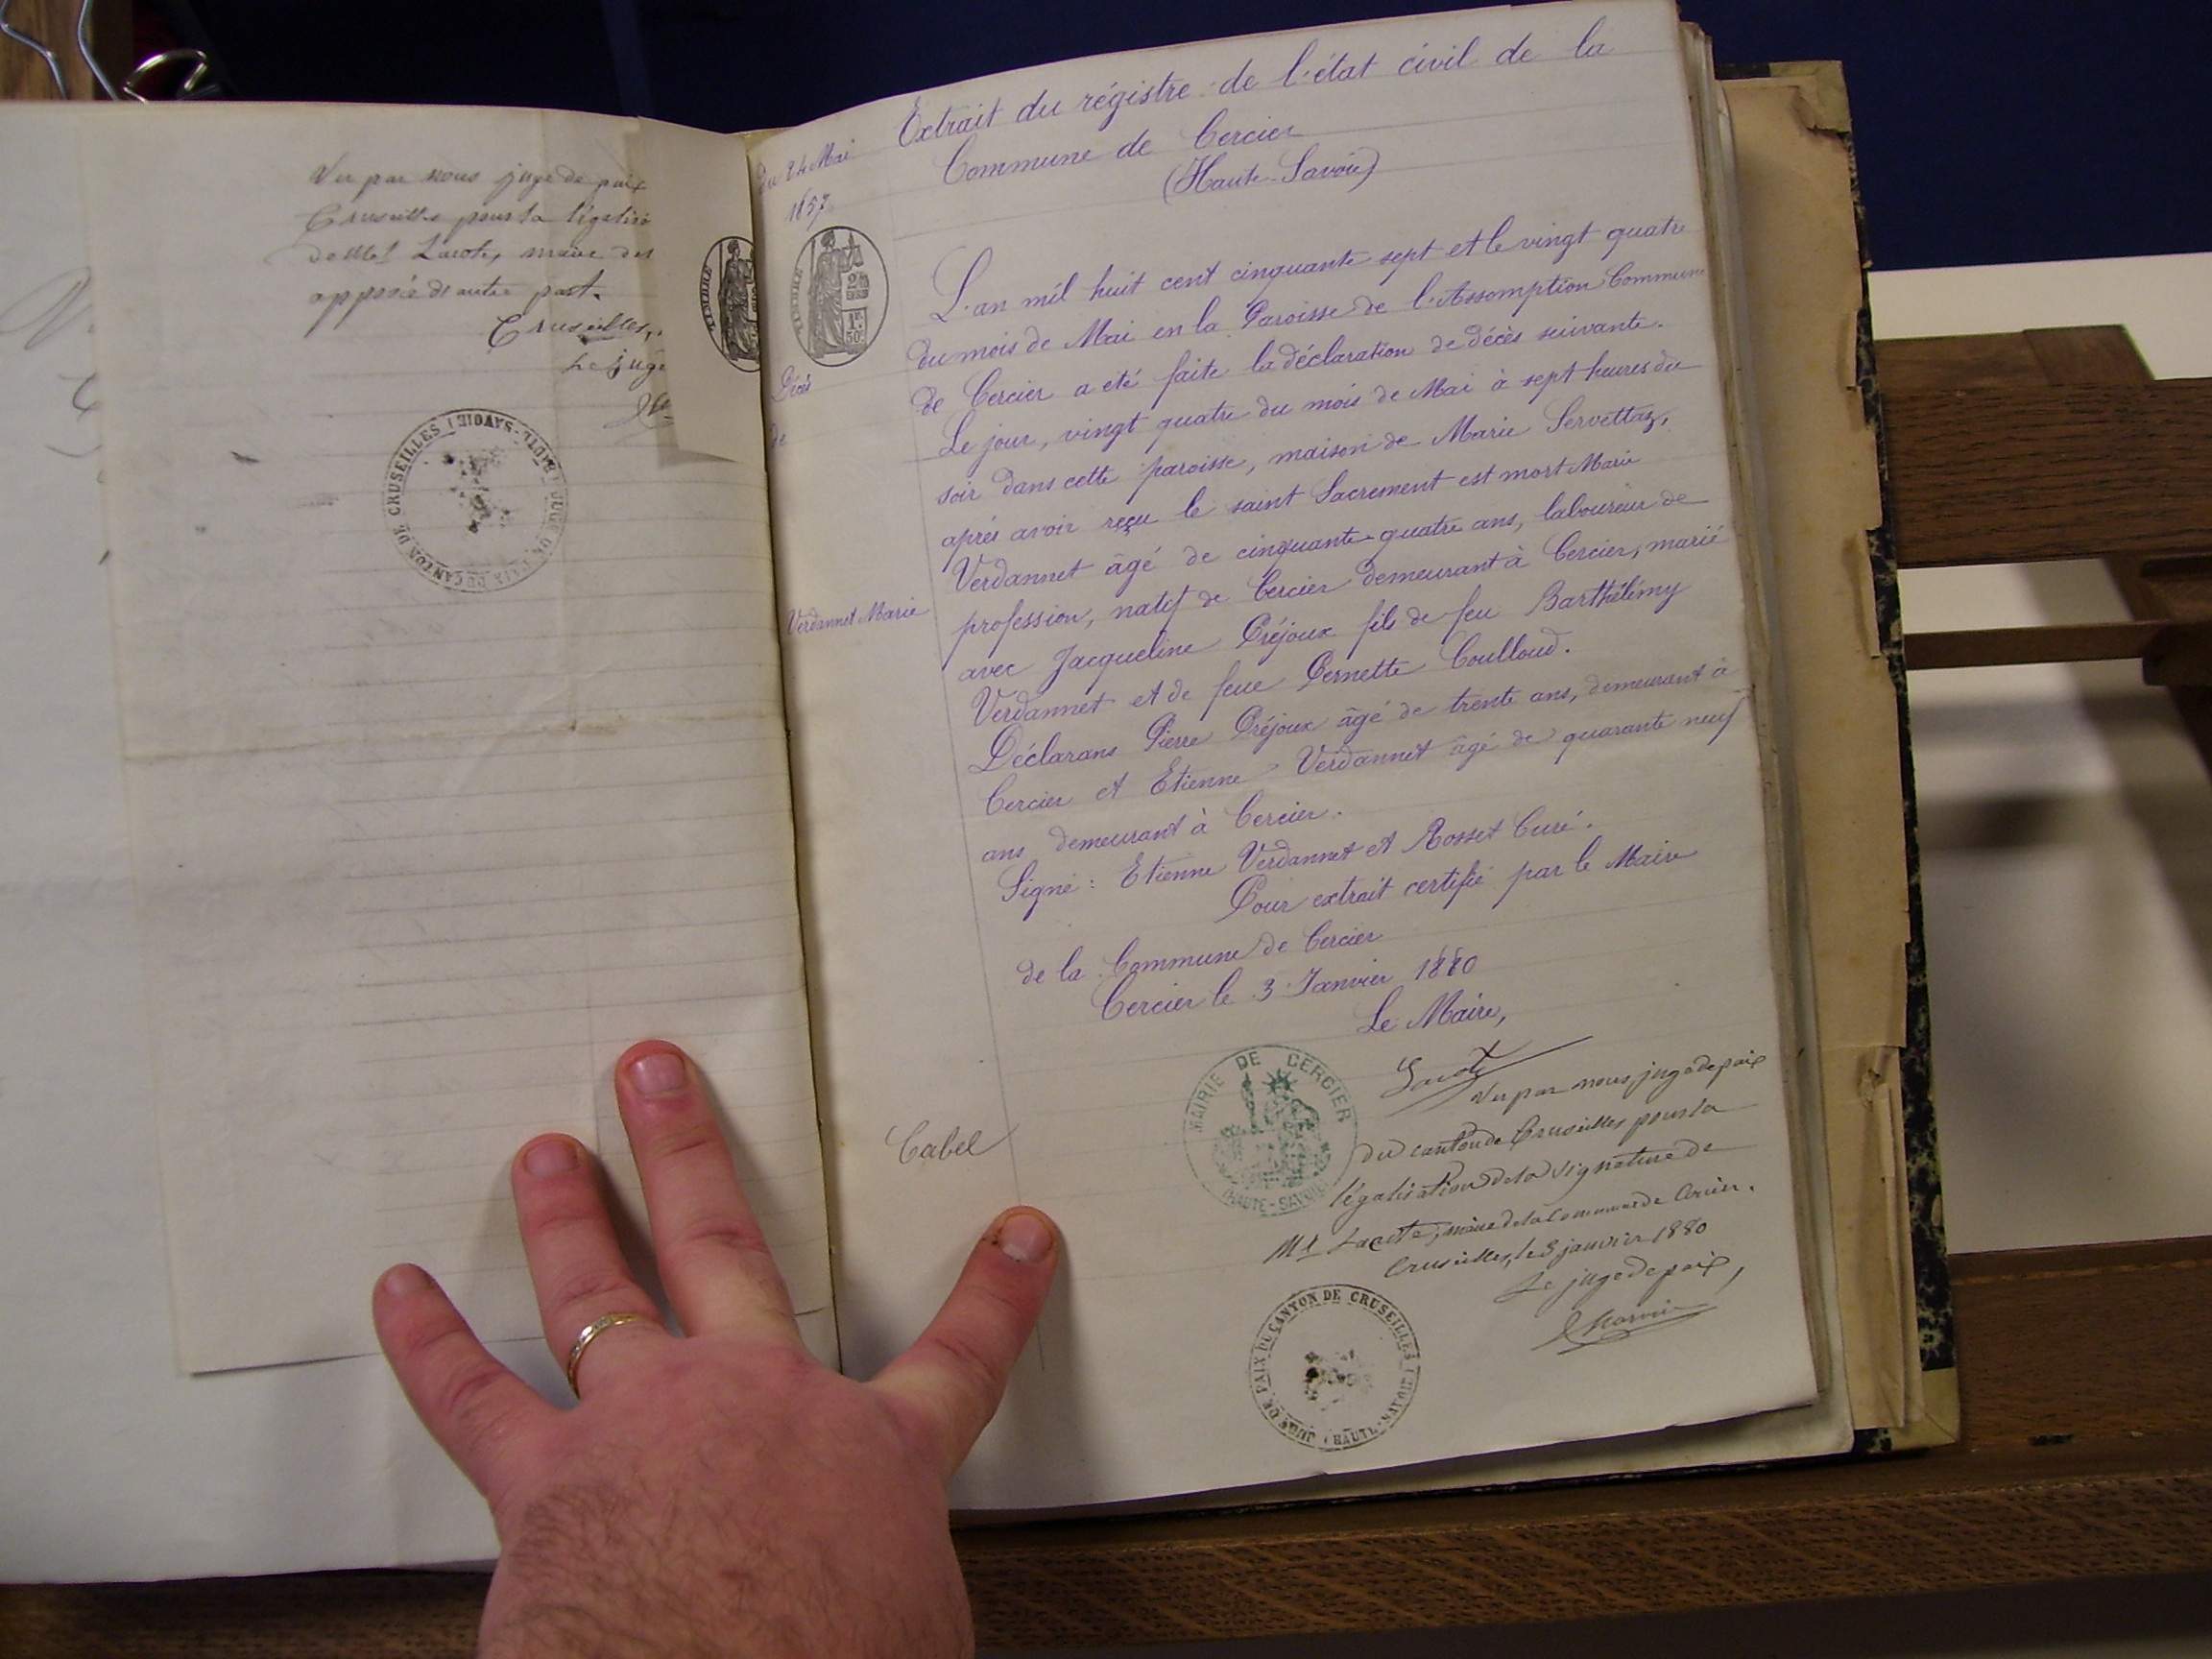 Vu par nous juge de paix
Cruseilles pour la légalisa
de Mr Lacote, maire de
apposée d'autre part.
Cruseilles,
Le juge
JUGE DE PAIX DU CANTON DE CRUSEILLES (HAUTE-SAVOIE)
TIMBRE
du 24 Mai
1857
TIMBRE
1F
50c
Décès
de
Verdannet Marie
Cabel
Extrait du régistre de l'état civil de la
Commune de Cercier
(Haute-Savoie)
L'an mil huit cent cinquante sept et le vingt quatre
du mois de Mai en la Paroisse de l'Assomption Commune
de Cercier a été faite la déclaration de décès suivante.
Le jour, vingt quatre du mois de Mai à sept heures du
soir dans cette paroisse, maison de Marie Servettaz,
aprés avoir reçu le saint Sacrement est mort Marie
Verdannet âgé de cinquante-quatre ans, laboureur de
profession, natif de Cercier demeurant à Cercier, marié
avec Jacqueline Préjoux fils de feu Barthélémy
Verdannet et de feue Pernette Coulloud.
Déclarans Pierre Préjoux âgé de trente ans, demeurant à
Cercier et Etienne Verdannet âgé de quarante neuf
ans demeurant à Cercier.
Signé : Etienne Verdannet et Rosset Curé.
Pour extrait certifié par le Maire
de la Commune de Cercier
Cercier le 3 Janvier 1880
Le Maire,
Lacote
MAIRIE DE CERCIER
(HAUTE-SAVOIE)
Vu par nous juge de paix
du canton de Cruseilles pour la
légalisation de la signature de
Mr Lacote, maire de la Commune de Cercier.
Cruseilles, le 3 janvier 1880
Le juge de paix,
JUGE DE PAIX DU CANTON DE CRUSEILLES (HAUTE-SAVOIE)